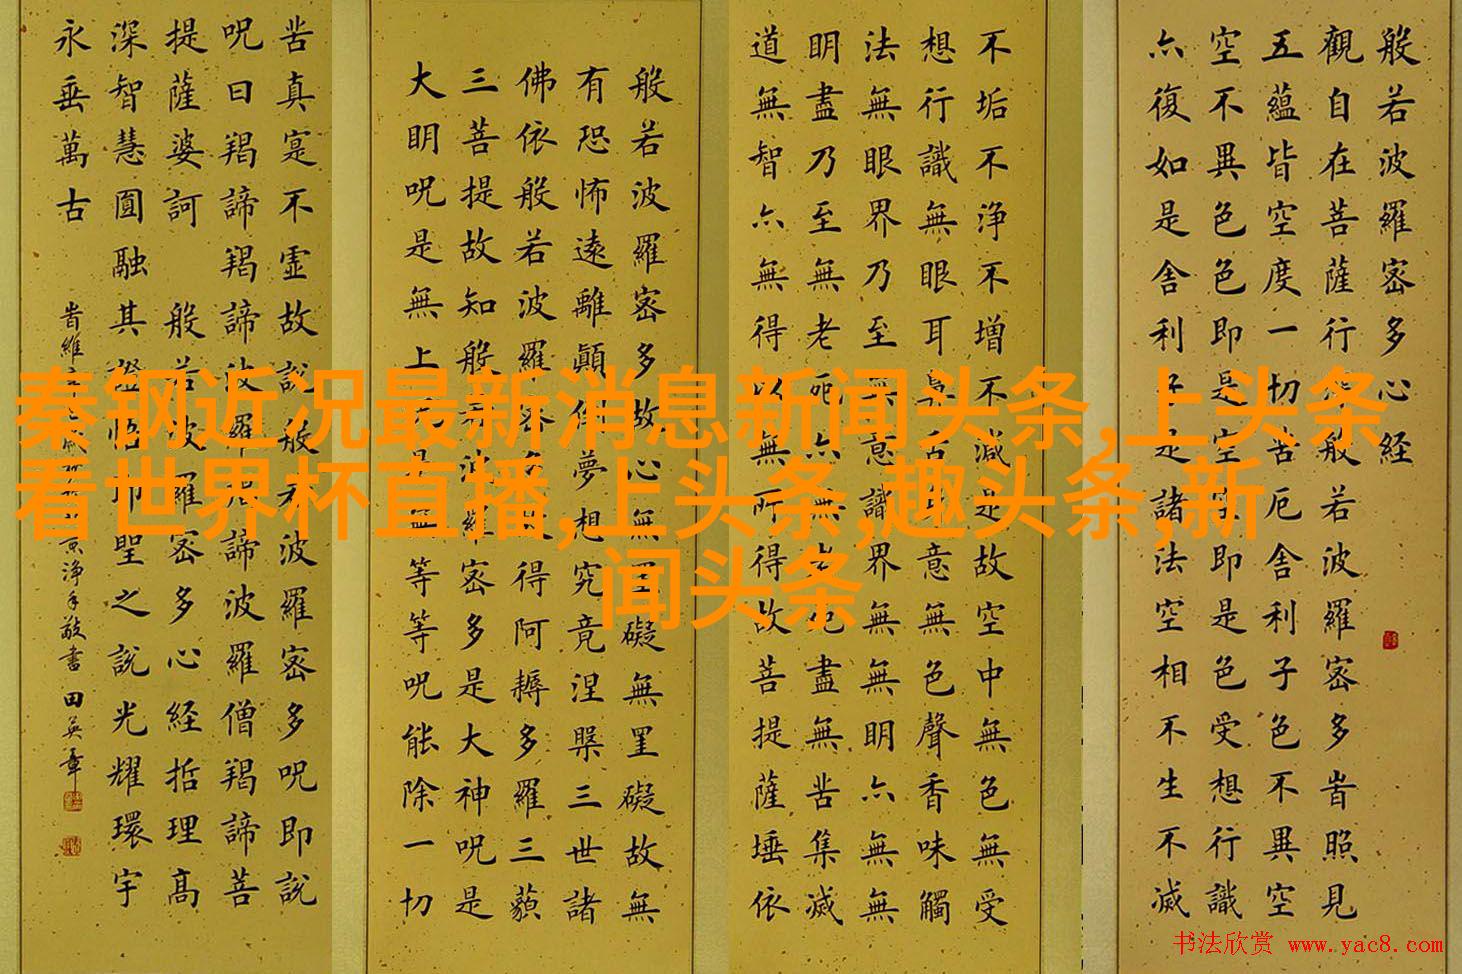 般若波羅密多心经
觀自在菩薩行深般若波羅密多时照見
五蘊皆空度一切苦厄舍利子色不異空
空不異色色即是空空即是色受想行識
亦復如是舍利子是諸法空相不生不滅
不垢不淨不增不減是故空中無色無受
想行識無眼耳鼻舌身意無色聲香味觸
法無眼界乃至無意識界無無明亦無無
明盡乃至無老死亦無老死盡無苦集滅
道無智亦無得以無所得故菩提薩埵依
般若波羅密多故心無罣礙無罣礙故無
有恐怖遠離顛倒夢想究竟涅槃三世諸
佛依般若波羅密多故得阿耨多羅三藐
三菩提故知般若波羅密多是大神呪是
大明呪是無上呪是無等等呪能除一切
苦真寔不虛故說般若波羅密多呪即說
呪曰羯諦羯諦波羅羯諦波羅僧羯諦菩
提薩婆訶 般若波羅密多心经括理高
深智慧圓融其證悟即聖之說光耀環宇
永垂萬古
淨手敬書田英章
秦钢近况最新消息新闻头条,上头条
看世界杯直播,上头条,趣头条,新
闻头条
书法欣赏 www.yac8.com